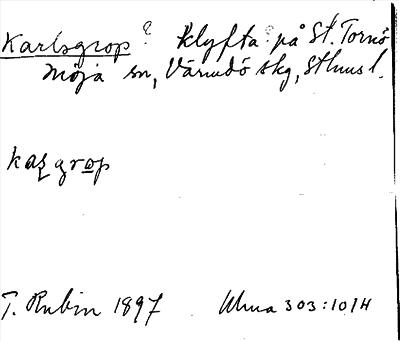 Karlsgrop? Klyfta på St. Tornö
Möja sn, Värmdö skg, Sthms l.
kaꞎgrop
T. Rubin 1897 Ulma 303:10/H